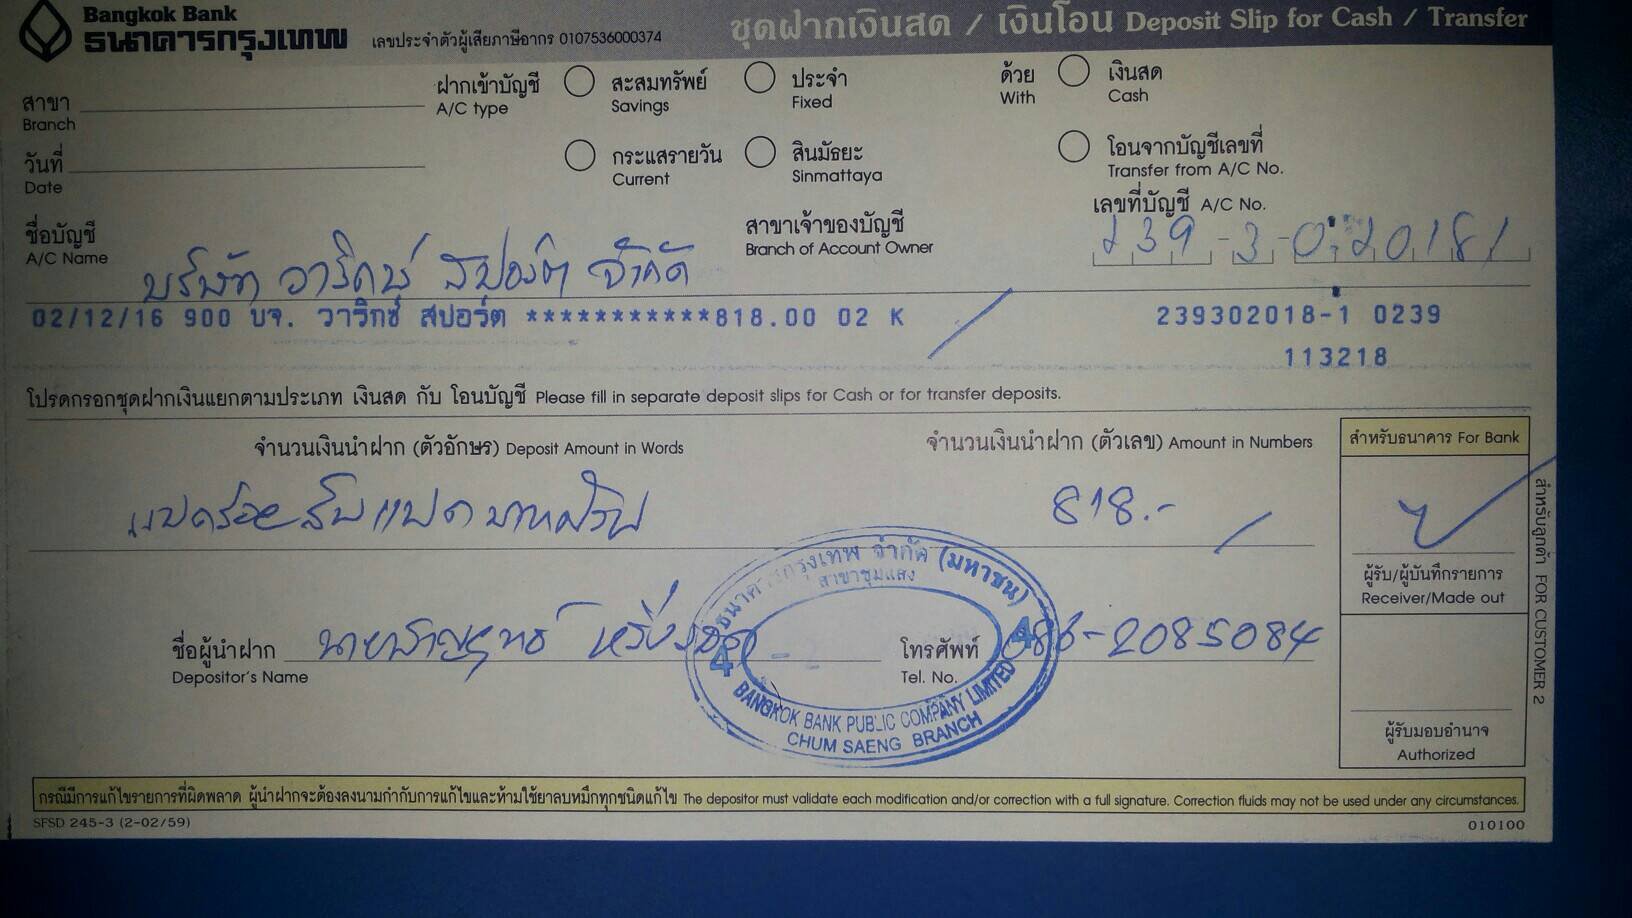 Bangkok Bank
ธนาคารกรุงเทพ เลขประจำตัวผู้เสียภาษีอากร 0107536000374
ชุดฝากเงินสด / เงินโอน Deposit Slip for Cash / Transfer
สาขา
Branch
วันที่
Date
ฝากเข้าบัญชี
A/C type
สะสมทรัพย์
Savings
ประจำ
Fixed
กระแสรายวัน
Current
สินมัธยะ
Sinmattaya
ด้วย
With
เงินสด
Cash
โอนจากบัญชีเลขที่
Transfer from A/C No.
ชื่อบัญชี
A/C Name
บริษัท วาริกซ์ สปอร์ต จำกัด
สาขาเจ้าของบัญชี
Branch of Account Owner
เลขที่บัญชี A/C No.
239-3-020181
02/12/16 900 บจ. วาริกซ์ สปอร์ต ***********818.00 02 K
239302018-1 0239
113218
โปรดกรอกชุดฝากเงินแยกตามประเภท เงินสด กับ โอนบัญชี Please fill in separate deposit slips for Cash or for transfer deposits.
จำนวนเงินนำฝาก (ตัวอักษร) Deposit Amount in Words
จำนวนเงินนำฝาก (ตัวเลข) Amount in Numbers
แปดร้อยสิบแปดบาทถ้วน
818.-
สำหรับธนาคาร For Bank
ผู้รับ/ผู้บันทึกรายการ
Receiver/Made out
ผู้รับมอบอำนาจ
Authorized
สำหรับลูกค้า FOR CUSTOMER 2
ชื่อผู้นำฝาก
Depositor's Name
โทรศัพท์ 086-2085084
Tel. No.
ธนาคารกรุงเทพ จำกัด (มหาชน)
สาขาชุมแสง
4 4
BANGKOK BANK PUBLIC COMPANY LIMITED
CHUM SAENG BRANCH
กรณีมีการแก้ไขรายการที่ผิดพลาด ผู้นำฝากจะต้องลงนามกำกับการแก้ไขและห้ามใช้ยาลบหมึกทุกชนิดแก้ไข The depositor must validate each modification and/or correction with a full signature. Correction fluids may not be used under any circumstances.
SFSD 245-3 (2-02/59)
010100